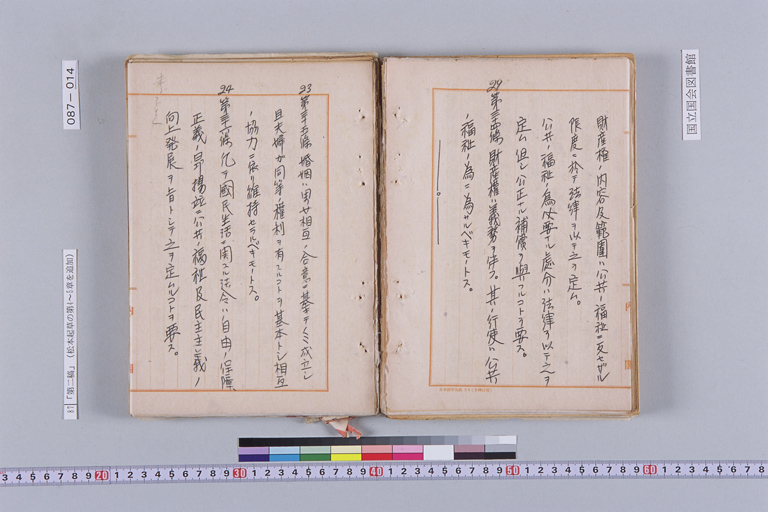 財産権ノ内容及範囲ハ公共ノ福祉ニ反セザル
限度ニ於テ法律ヲ以テ之ヲ定ム。
公共ノ福祉ノ為必要ナル處分ハ法律ヲ以テ之ヲ
定ム但シ公正ナル補償ヲ與フルコトヲ要ス。
29
第三十四條 財産權ハ義務ヲ伴フ。其ノ行使ハ公共
ノ福祉ノ為ニ為サルベキモノトス。
23
第三十五條 婚姻ハ男女相互ノ合意ニ基キテノミ成立シ
且夫婦ガ同等ノ權利ヲ有スルコトヲ基本トシ相互
ノ協力ニ依リ維持セラルベキモノトス。
24
第三十六條 凡テ國民生活ニ関スル法令ハ自由ノ保障、
正義ノ昂揚並ニ公共ノ福祉及民主主義ノ
向上発展ヲ旨トシテ之ヲ定ムルコトヲ要ス。
国立国会図書館
087-014
87「第二稿」(松本起草の第1〜5章を追加)
3 4 5 6 7 8 9 20 1 2 3 4 5 6 7 8 9 30 1 2 3 4 5 6 7 8 9 40 1 2 3 4 5 6 7 8 9 50 1 2 3 4 5 6 7 8 9 60 1 2 3 4 5 6 7 8